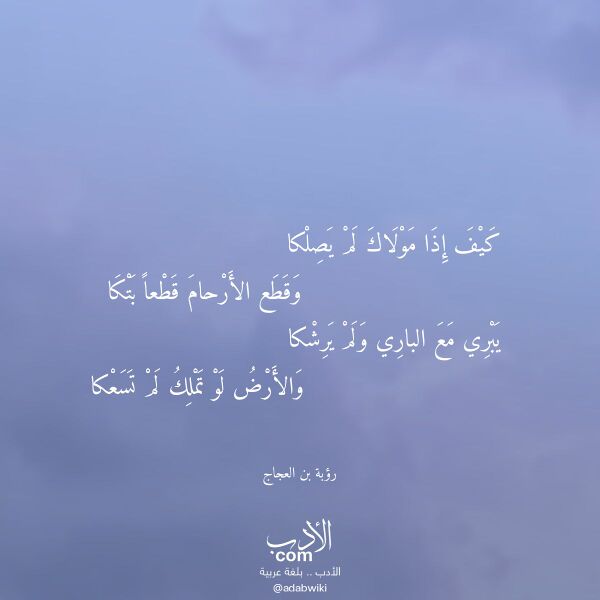 كَيْفَ إِذَا مَوْلَاكَ لَمْ يَصِلْكا
وَقَطَع الأَرْحامَ قَطْعاً بَتْكَا
يَبْرِي مَعَ البارِي وَلَمْ يَرِشْكا
وَالأَرْضُ لَوْ تَمْلِكُ لَمْ تَسَعْكا
رؤبة بن العجاج
الأدب
com
الأدب .. بلغة عربية
@adabwiki